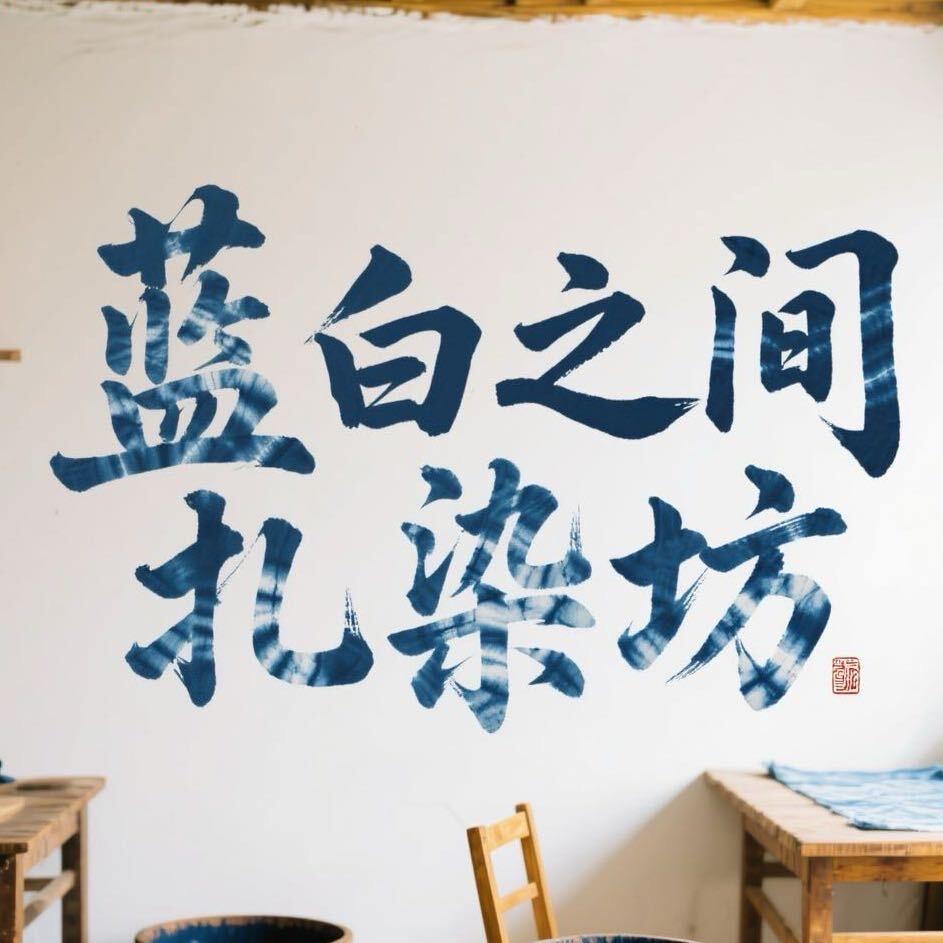 蓝白之间
扎染坊